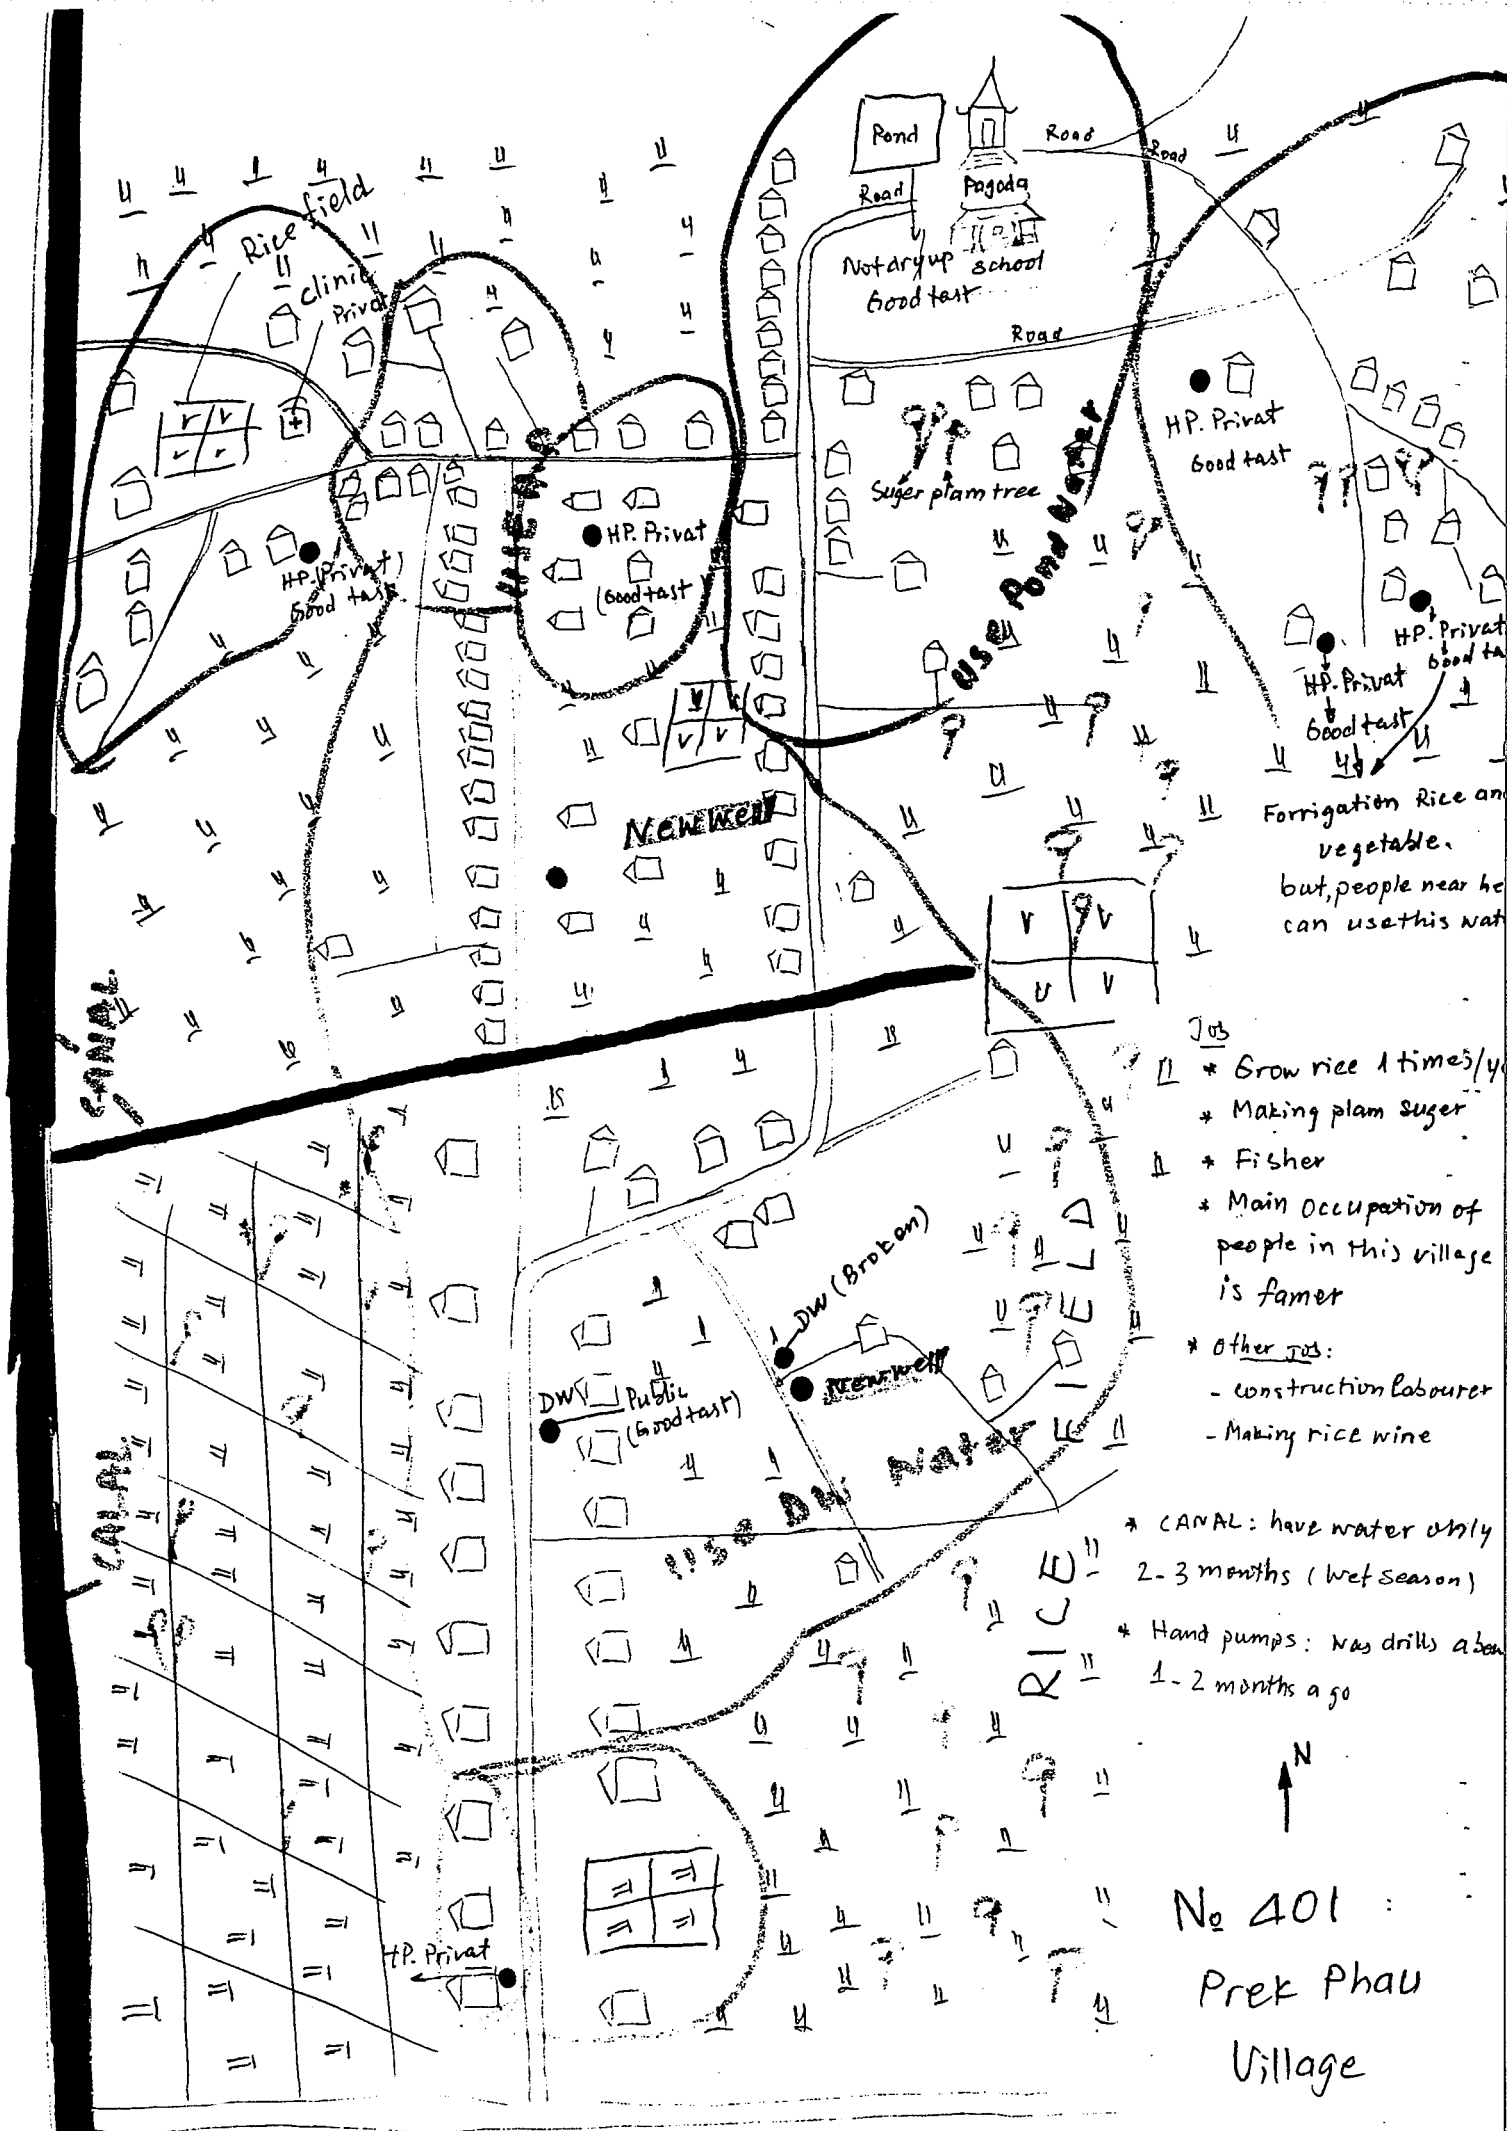 Pond
Road
Road
Road
Pagoda
School
Not dry up
Good tast
Road
Rice field
clinic
Privat
HP. Privat
Good tast
Suger plam tree
HP. Privat
(Good tast
HP. (Privat)
Good tast.
Use Pond Water
HP. Privat
Good ta
HP. Privat
Good tast
Forrigation Rice an
vegetable.
but, people near he
can use this wat
New well
CANAL
Job
* Grow rice 1 times/y
* Making plam suger
* Fisher
* Main occupation of
people in this village
is famer
* Other Job:
- construction labourer
- Making rice wine
DW (Broken)
New well
DW Public
(Good tast)
Use DW Water
RICE FIELD
CANAL
* CANAL: have water only
2-3 months (wet season)
* Hand pumps: was drills abou
1-2 months ago
N
HP. Privat
No 401
Prek Phau
Village